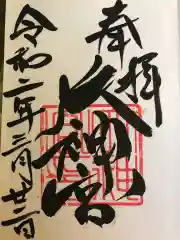 奉拝
大神宮
令和二年三月廿二日